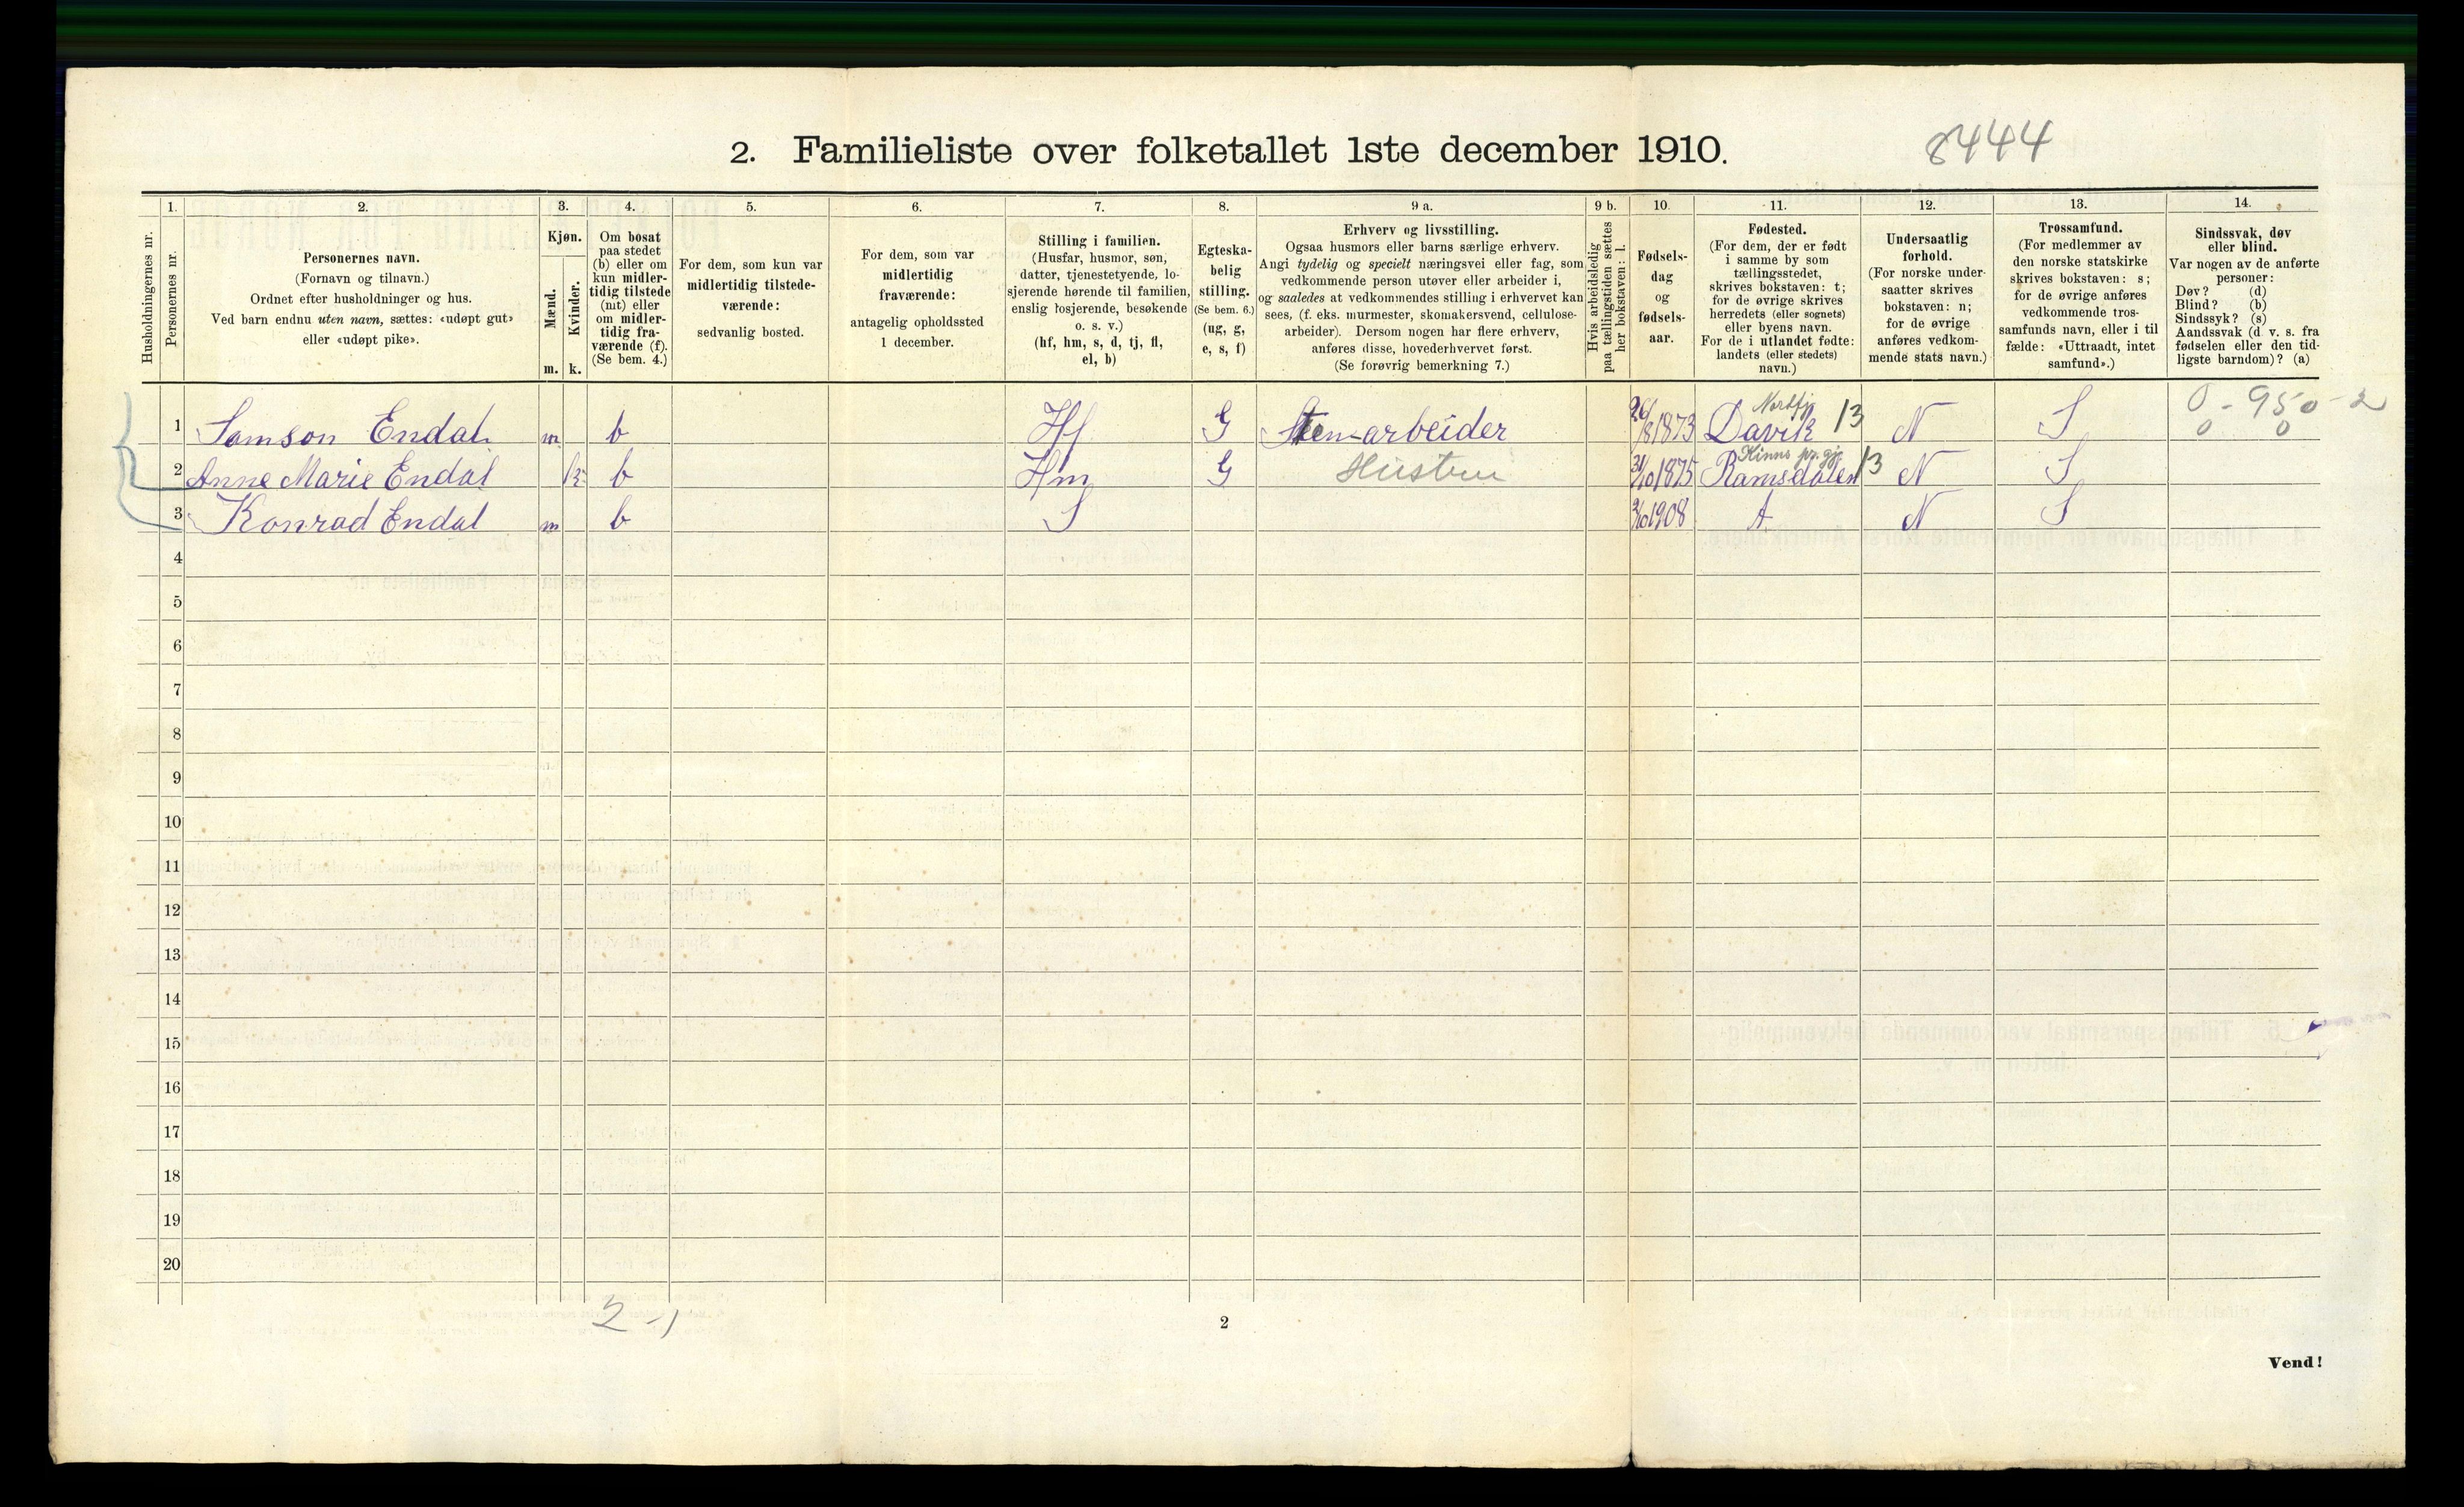 2. Familieliste over folketallet 1ste december 1910.
8444
Husholdningernes nr.
1.
Personernes nr.
2.
Personernes navn.
(Fornavn og tilnavn.)
Ordnet efter husholdninger og hus.
Ved barn endnu uten navn, sættes: «udøpt gut»
eller «udøpt pike».
3.
Kjøn.
Mænd.
Kvinder.
m. k.
4.
Om bosat
paa stedet
(b) eller om
kun midler-
tidig tilstede
(mt) eller
om midler-
tidig fra-
værende (f).
(Se bem. 4.)
5.
For dem, som kun var
midlertidig tilstede-
værende:
sedvanlig bosted.
6.
For dem, som var
midlertidig
fraværende:
antagelig opholdssted
1 december.
7.
Stilling i familien.
(Husfar, husmor, søn,
datter, tjenestetyende, lo-
sjerende hørende til familien,
enslig losjerende, besøkende
o. s. v.)
(hf, hm, s, d, tj, fl,
el, b)
8.
Egteska-
belig
stilling.
(Se bem. 6.)
(ug, g,
e, s, f)
9 a.
Erhverv og livsstilling.
Ogsaa husmors eller barns særlige erhverv.
Angi tydelig og specielt næringsvei eller fag, som
vedkommende person utøver eller arbeider i,
og saaledes at vedkommendes stilling i erhvervet kan
sees, (f. eks. murmester, skomakersvend, cellulose-
arbeider). Dersom nogen har flere erhverv,
anføres disse, hovederhvervet først.
(Se forøvrig bemerkning 7.)
9 b.
Hvis arbeidsledig
paa tællingstiden sættes
her bokstaven: l.
10.
Fødsels-
dag
og
fødsels-
aar.
11.
Fødested.
(For dem, der er født
i samme by som
tællingsstedet,
skrives bokstaven: t;
for de øvrige skrives
herredets (eller sognets)
eller byens navn.
For de i utlandet fødte:
landets (eller stedets)
navn.)
12.
Undersaatlig
forhold.
(For norske under-
saatter skrives
bokstaven: n;
for de øvrige
anføres vedkom-
mende stats navn.)
13.
Trossamfund.
(For medlemmer av
den norske statskirke
skrives bokstaven: s;
for de øvrige anføres
vedkommende tros-
samfunds navn, eller i til
fælde: «Uttraadt, intet
samfund».)
14.
Sindssvak, døv
eller blind.
Var nogen av de anførte
personer:
Døv? (d)
Blind? (b)
Sindssyk? (s)
Aandssvak (d. v. s. fra
fødselen eller den tid-
ligste barndom)? (a)
0 - 950 - 2
0 0
Nordfj
1 Samson Endal m b Hf G Stenarbeider 26/8 1873 Davik 13 N S
Kinns pr.gj.
2 Anne Marie Endal k b Hm G Hustru 31/10 1875 Ramsdalen 13 N S
3 Konrad Endal m b S 2/10 1908 A N S
4
5
6
7
8
9
10
11
12
13
14
15
16
17
18
19
20
2-1
2
Vend!